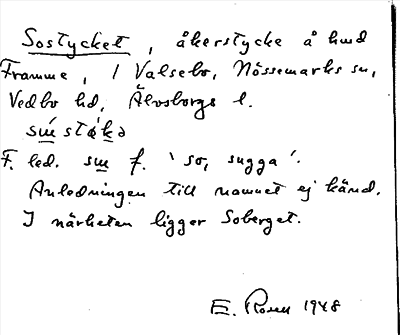 Sostycket, åkerstycke å hmd
Framme, i Valsebo, Nössemarks sn,
Vedbo hd, Älvsborgs l.
F. led. su f. 'so, sugga'.
Anledningen till namnet ej känd.
I närheten ligger Soberget.
E. Rosen 1948